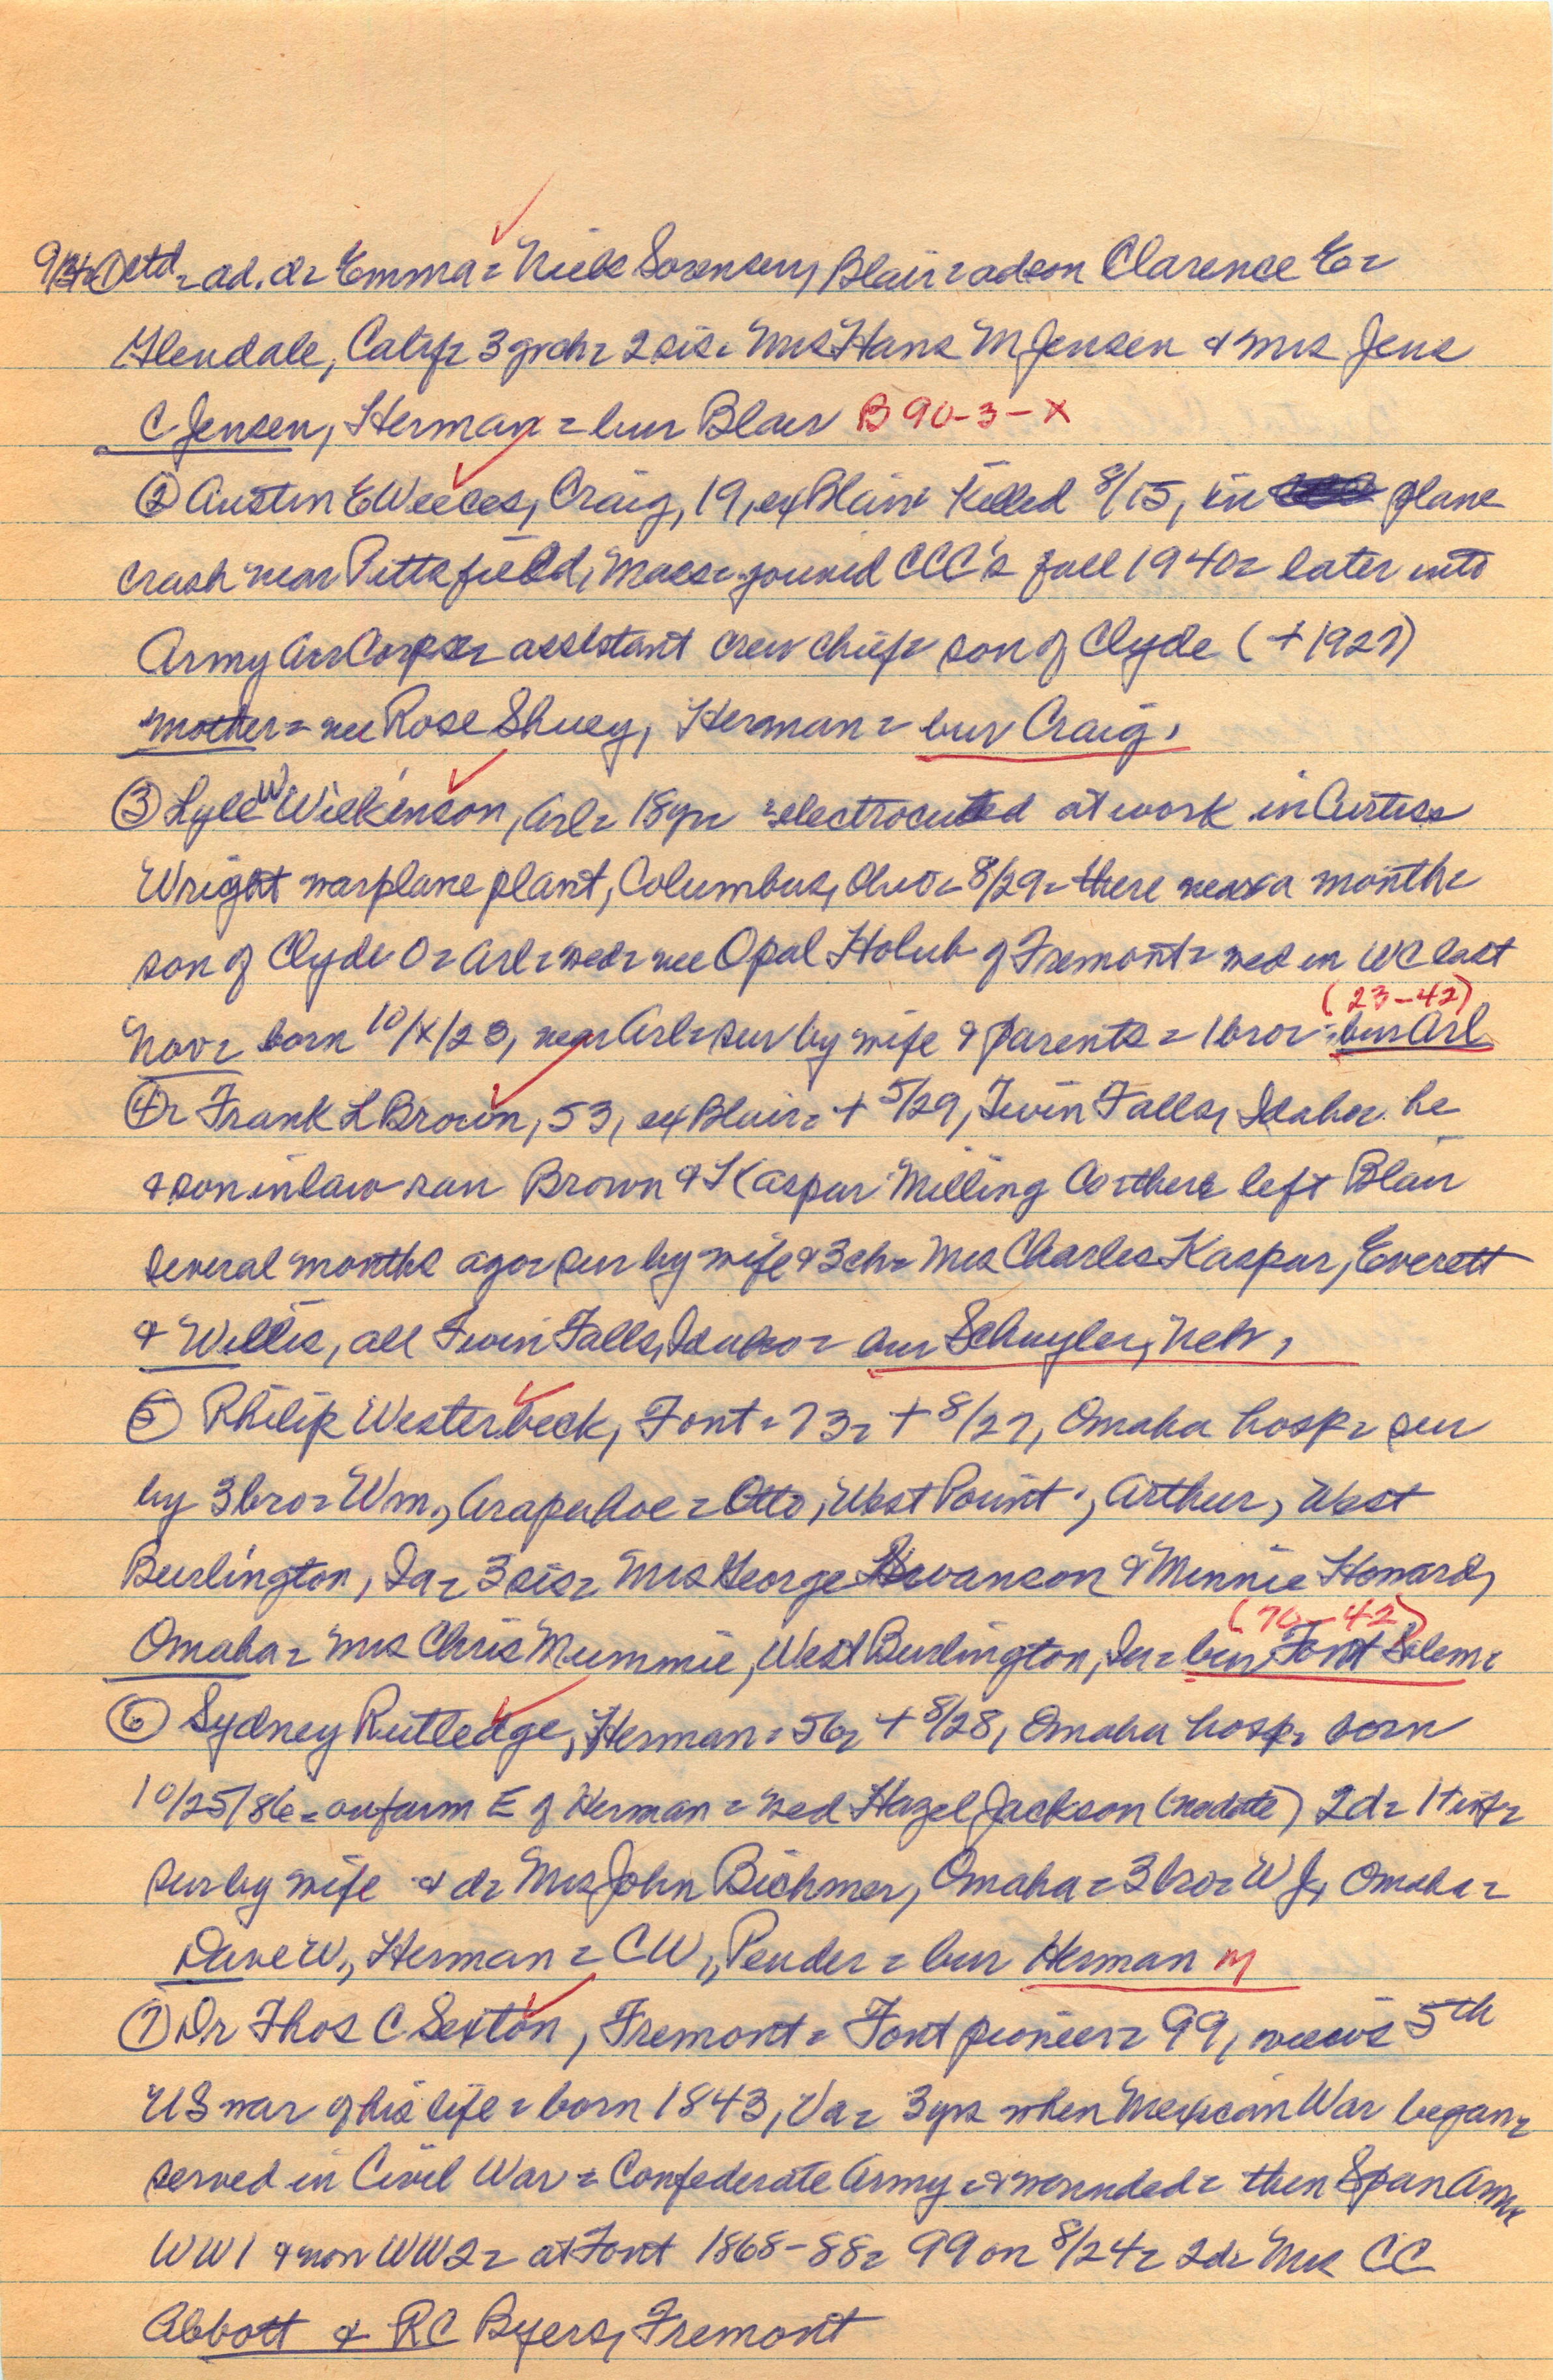 ctd = ad. d = Emma = Niels Sorensen, Blair = adson Clarence E =
Glendale, Calif = 3 grch = 2 sis = Mrs Hans M Jensen & Mrs Jens
C Jensen, Herman = bur Blair B 90-3-X
② Austin E Weeces, Craig, 19, ex Blair = killed 8/15, in plane
crash near Pittsfield, Mass = joined CCC's fall 1940 = later into
Army Air Corps = assistant crew chief = son of Clyde (+1927)
mother = nee Rose Shuey, Herman = bur Craig,
③ Lyle W Wilkinson, Arl = 18yr = electrocuted at work in Curtiss
Wright warplane plant, Columbus, Ohio = 8/29 = there near a month =
son of Clyde O = Arl = wed = nee Opal Holub of Fremont = wed in WC last
(23-42)
Nov = born 10/X/23, near Arl = sur by wife & parents = 1 bro = bur Arl
④ = Frank L Brown, 53, ex Blair = + 5/29, Twin Falls, Idaho = he
& son in law ran Brown & Kaspar Milling Co there left Blair
several months ago = sur by wife & 3 ch = Mrs Charles Kaspar, Everett
& Willis, all Twin Falls, Idaho = bur Schuyler, Nebr,
⑤ Philip Westerbeck, Font = 73 = + 8/27, Omaha hosp = sur
by 3 bro = Wm., Arapahoe = Otto, West Point, Arthur, West
Burlington, Ia = 3 sis = Mrs George Swanson & Minnie Howard,
(70-42)
Omaha = Mrs Chris Mummie, West Burlington, Ia = bur Font Salem =
⑥ Sydney Rutledge, Herman = 56 = + 8/28, Omaha hosp = born
10/25/86 = on farm E of Herman = wed Hazel Jackson (no date) 2d = 1+ inf =
sur by wife & d = Mrs John Bichmer, Omaha = 3 bro = W J, Omaha =
Dave W., Herman = C W., Pender = bur Herman M
⑦ Dr Thos C Sexton, Fremont = Font pioneer = 99, views 5th
US war of his life = born 1843, Va = 3 yrs when Mexican War began =
served in Civil War = Confederate Army = & wounded = then Span Amer
WW1 & now WW2 = at Font 1868-88 = 99 on 8/24 = 2d = Mrs CC
Abbott & RC Byers, Fremont